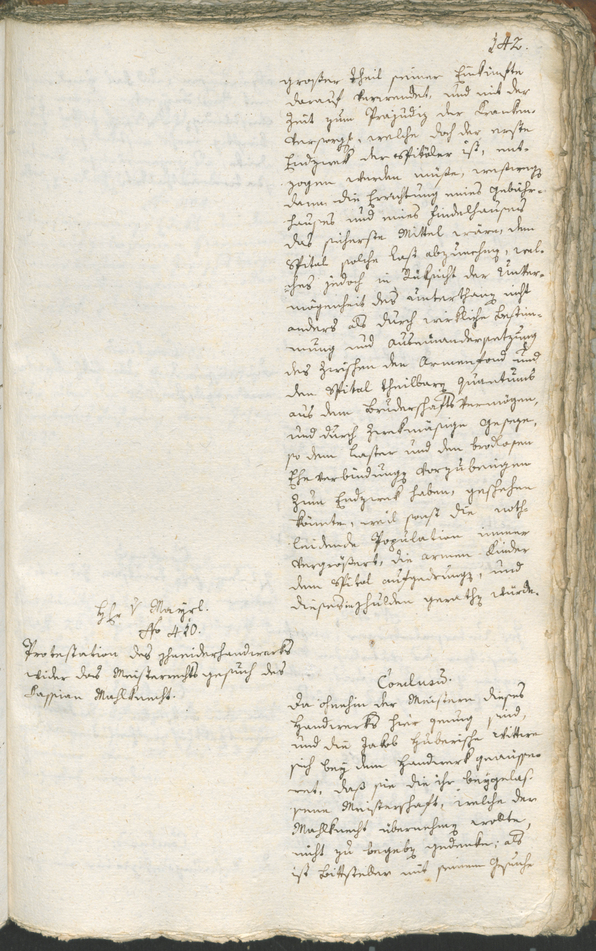 142.
großer Theil seiner Einkünfte
darauf verwendet, und mit der
Zeit zum Präjudiz der Kranken-
versorg, welche doch der erste
Endzwek der Spitäler ist, ent-
zogen werden müßte,
dann die Errichtung eines Gebähr-
hauses und eines Findelhauses
das sicherste Mittel wäre, dem
Spital solche Last abzunehmen, wel-
ches jedoch in Rüksicht der Unver-
mögenheit des Unterthans nicht
anders als durch wirkliche Bestim-
mung und Auseinandersetzung
des zwischen den Armenfond und
den Spital theilbaren Quantums
aus dem Bruderschafts Vermögen,
und durch zwekmäsige Geseze,
so dem Laster und den brodlosen
Ehe Verbindungen vorzubeugen
zum Endzwek haben, geschehen
könnte, weil sonst die noth-
leidende Population immer
vergrößert, die armen Kinder
dem Spital aufgedrungen, und
dieses in Schulden gerathen würde.
H: v Mayrl.
No 410.
Protestation des Schneiderhandwerks
wider das Meisterrechts gesuch des
Kassian Mahlknecht.
Conclusum.
Da ohnehin der Meistern dieses
Handwerks hier genug sind,
und die Jakob Huberische Wittwe
sich bey dem Handwerk geaüsse-
ret, daß sie die ihr beygelas-
sene Meisterschaft, welche der
Mahlknecht übernehmen wollte,
nicht zu begeben gedenke; als
ist Bittsteller mit seinem Gesuche